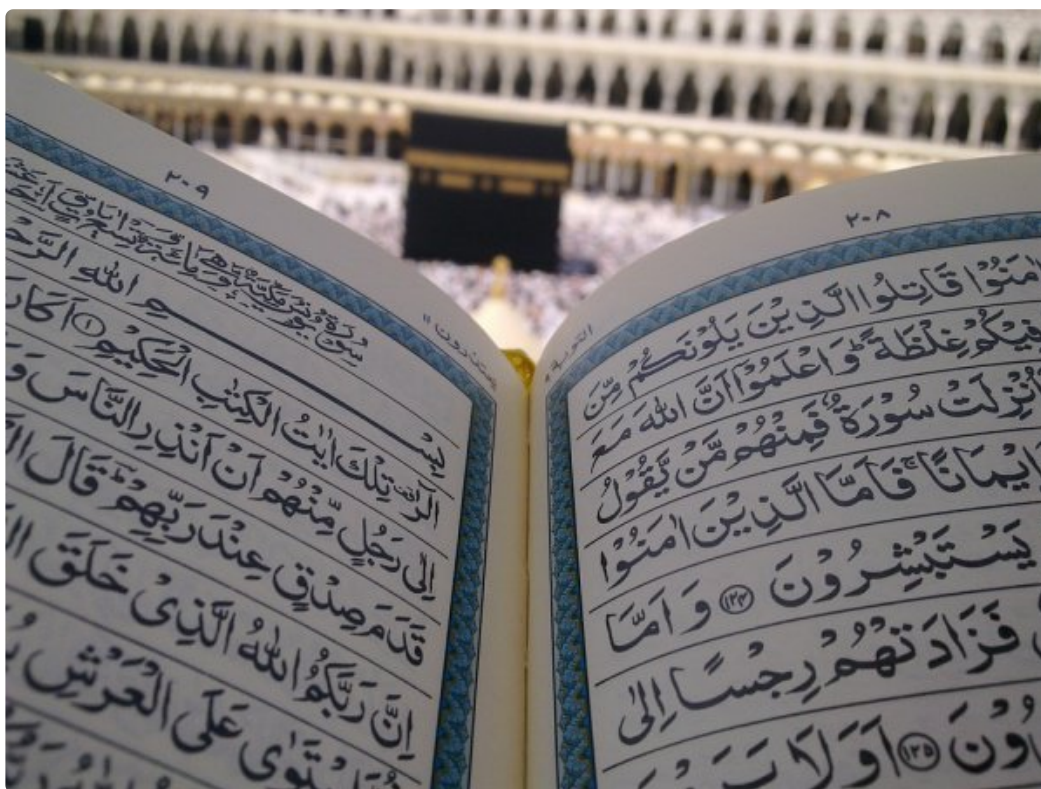 ٢٠٨
التوبة ٩
اٰمَنُوْا قَاتِلُوا الَّذِيْنَ يَلُوْنَكُمْ مِّنَ
فِيْكُمْ غِلْظَةً ؕ وَاعْلَمُوْۤا اَنَّ اللّٰهَ مَعَ
اُنْزِلَتْ سُوْرَةٌ فَمِنْهُمْ مَّنْ يَّقُوْلُ
اِيْمَانًا ۚ فَاَمَّا الَّذِيْنَ اٰمَنُوْا
يَسْتَبْشِرُوْنَ ﴿۱۲۴﴾ وَ اَمَّا
فَزَادَتْهُمْ رِجْسًا اِلٰى
وْنَ ﴿۱۲۵﴾ اَوَلَا
٢٠٩
يعتذرون ١١
سُوْرَةُ يُوْنُسَ مَكِّيَّةٌ
بِسْمِ اللّٰهِ الرَّحْ
الٓرٰ ۫ تِلْكَ اٰيٰتُ الْكِتٰبِ الْحَكِيْمِ ﴿۱﴾ اَكَانَ
اِلٰى رَجُلٍ مِّنْهُمْ اَنْ اَنْذِرِ النَّاسَ وَ
قَدَمَ صِدْقٍ عِنْدَ رَبِّهِمْ ؕ قَالَ الْ
اِنَّ رَبَّكُمُ اللّٰهُ الَّذِىْ خَلَقَ ال
اسْتَوٰى عَلَى الْعَرْشِ يُ